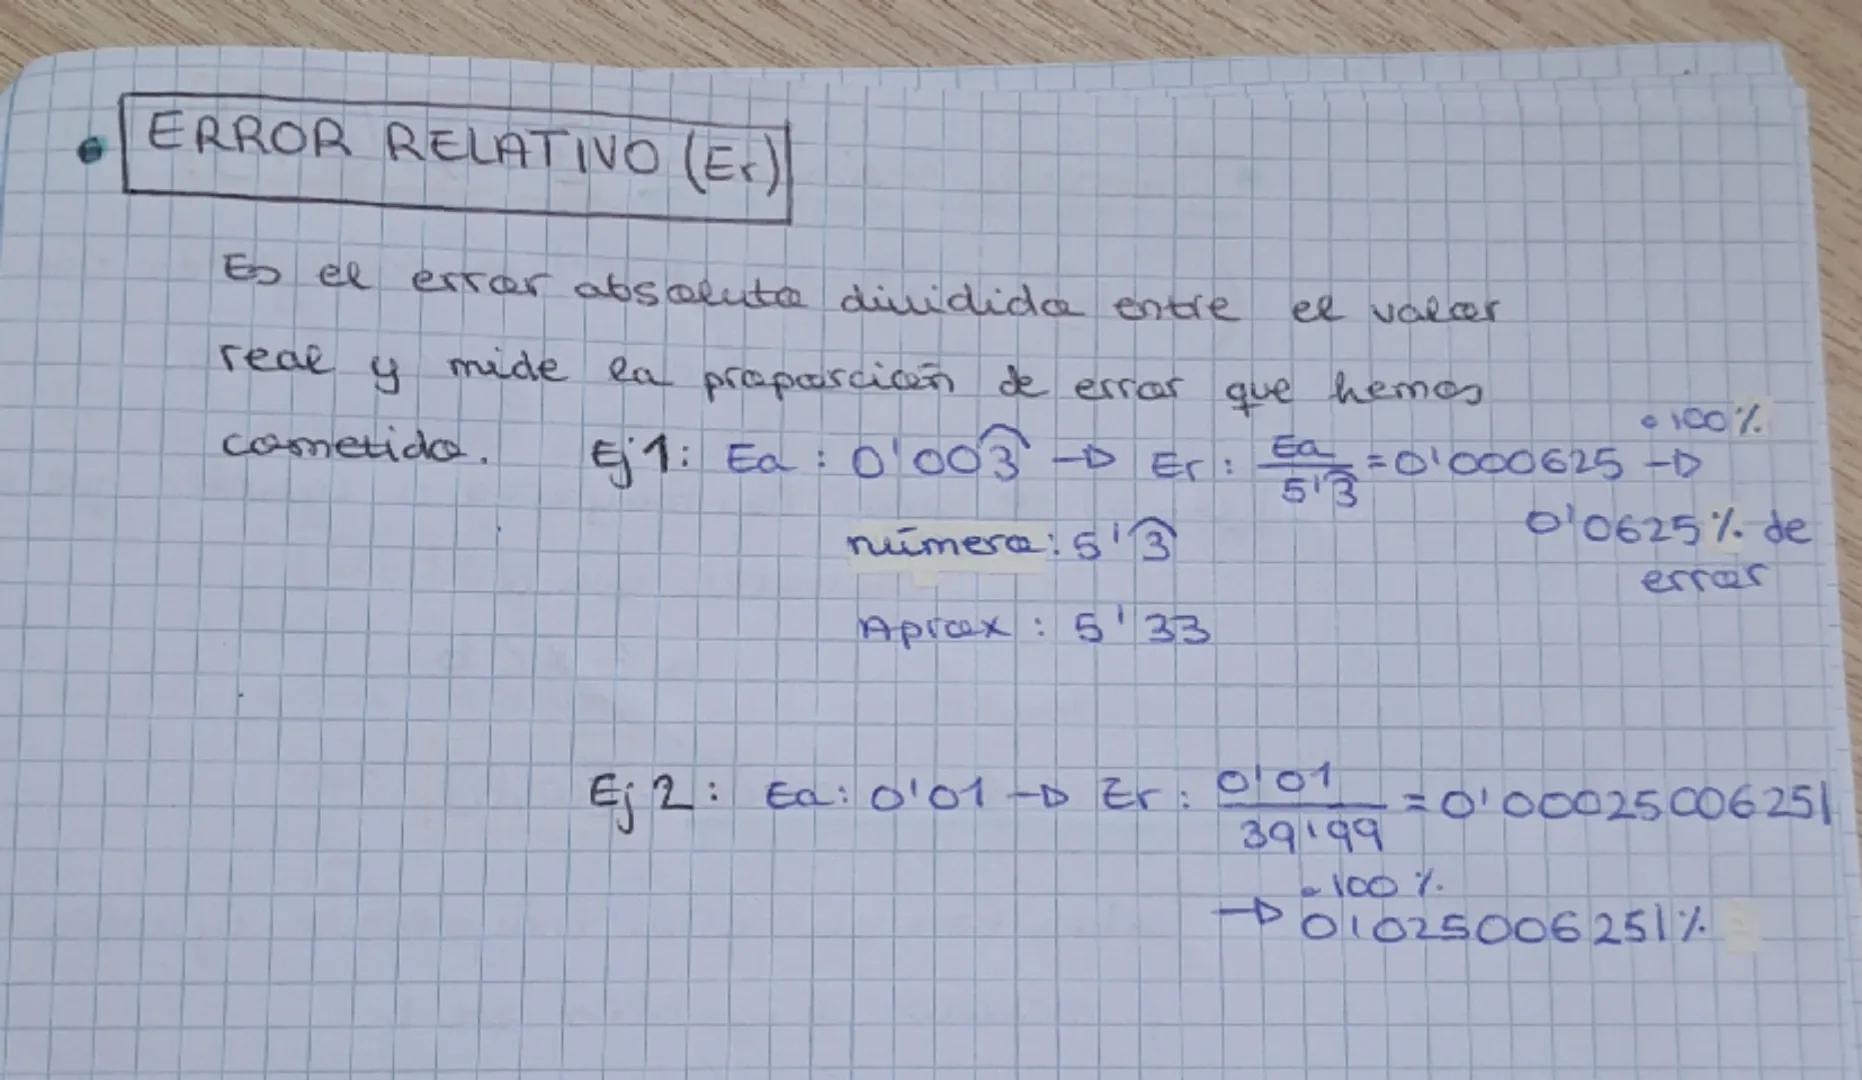 ERROR RELATIVO (Er)
Es el error absoluto dividido entre el valor
real y mide la proporción de error que hemos
cometido. Ej 1: Ea : 0'003̂ → Er : Ea/5'3̂ = 0'000625 → · 100%
número: 5'3̂ 0'0625% de
Aprox : 5'33 error
Ej 2: Ea: 0'01 → Er : 0'01/39'99 = 0'00025006251
· 100 %
→ 0'025006251%